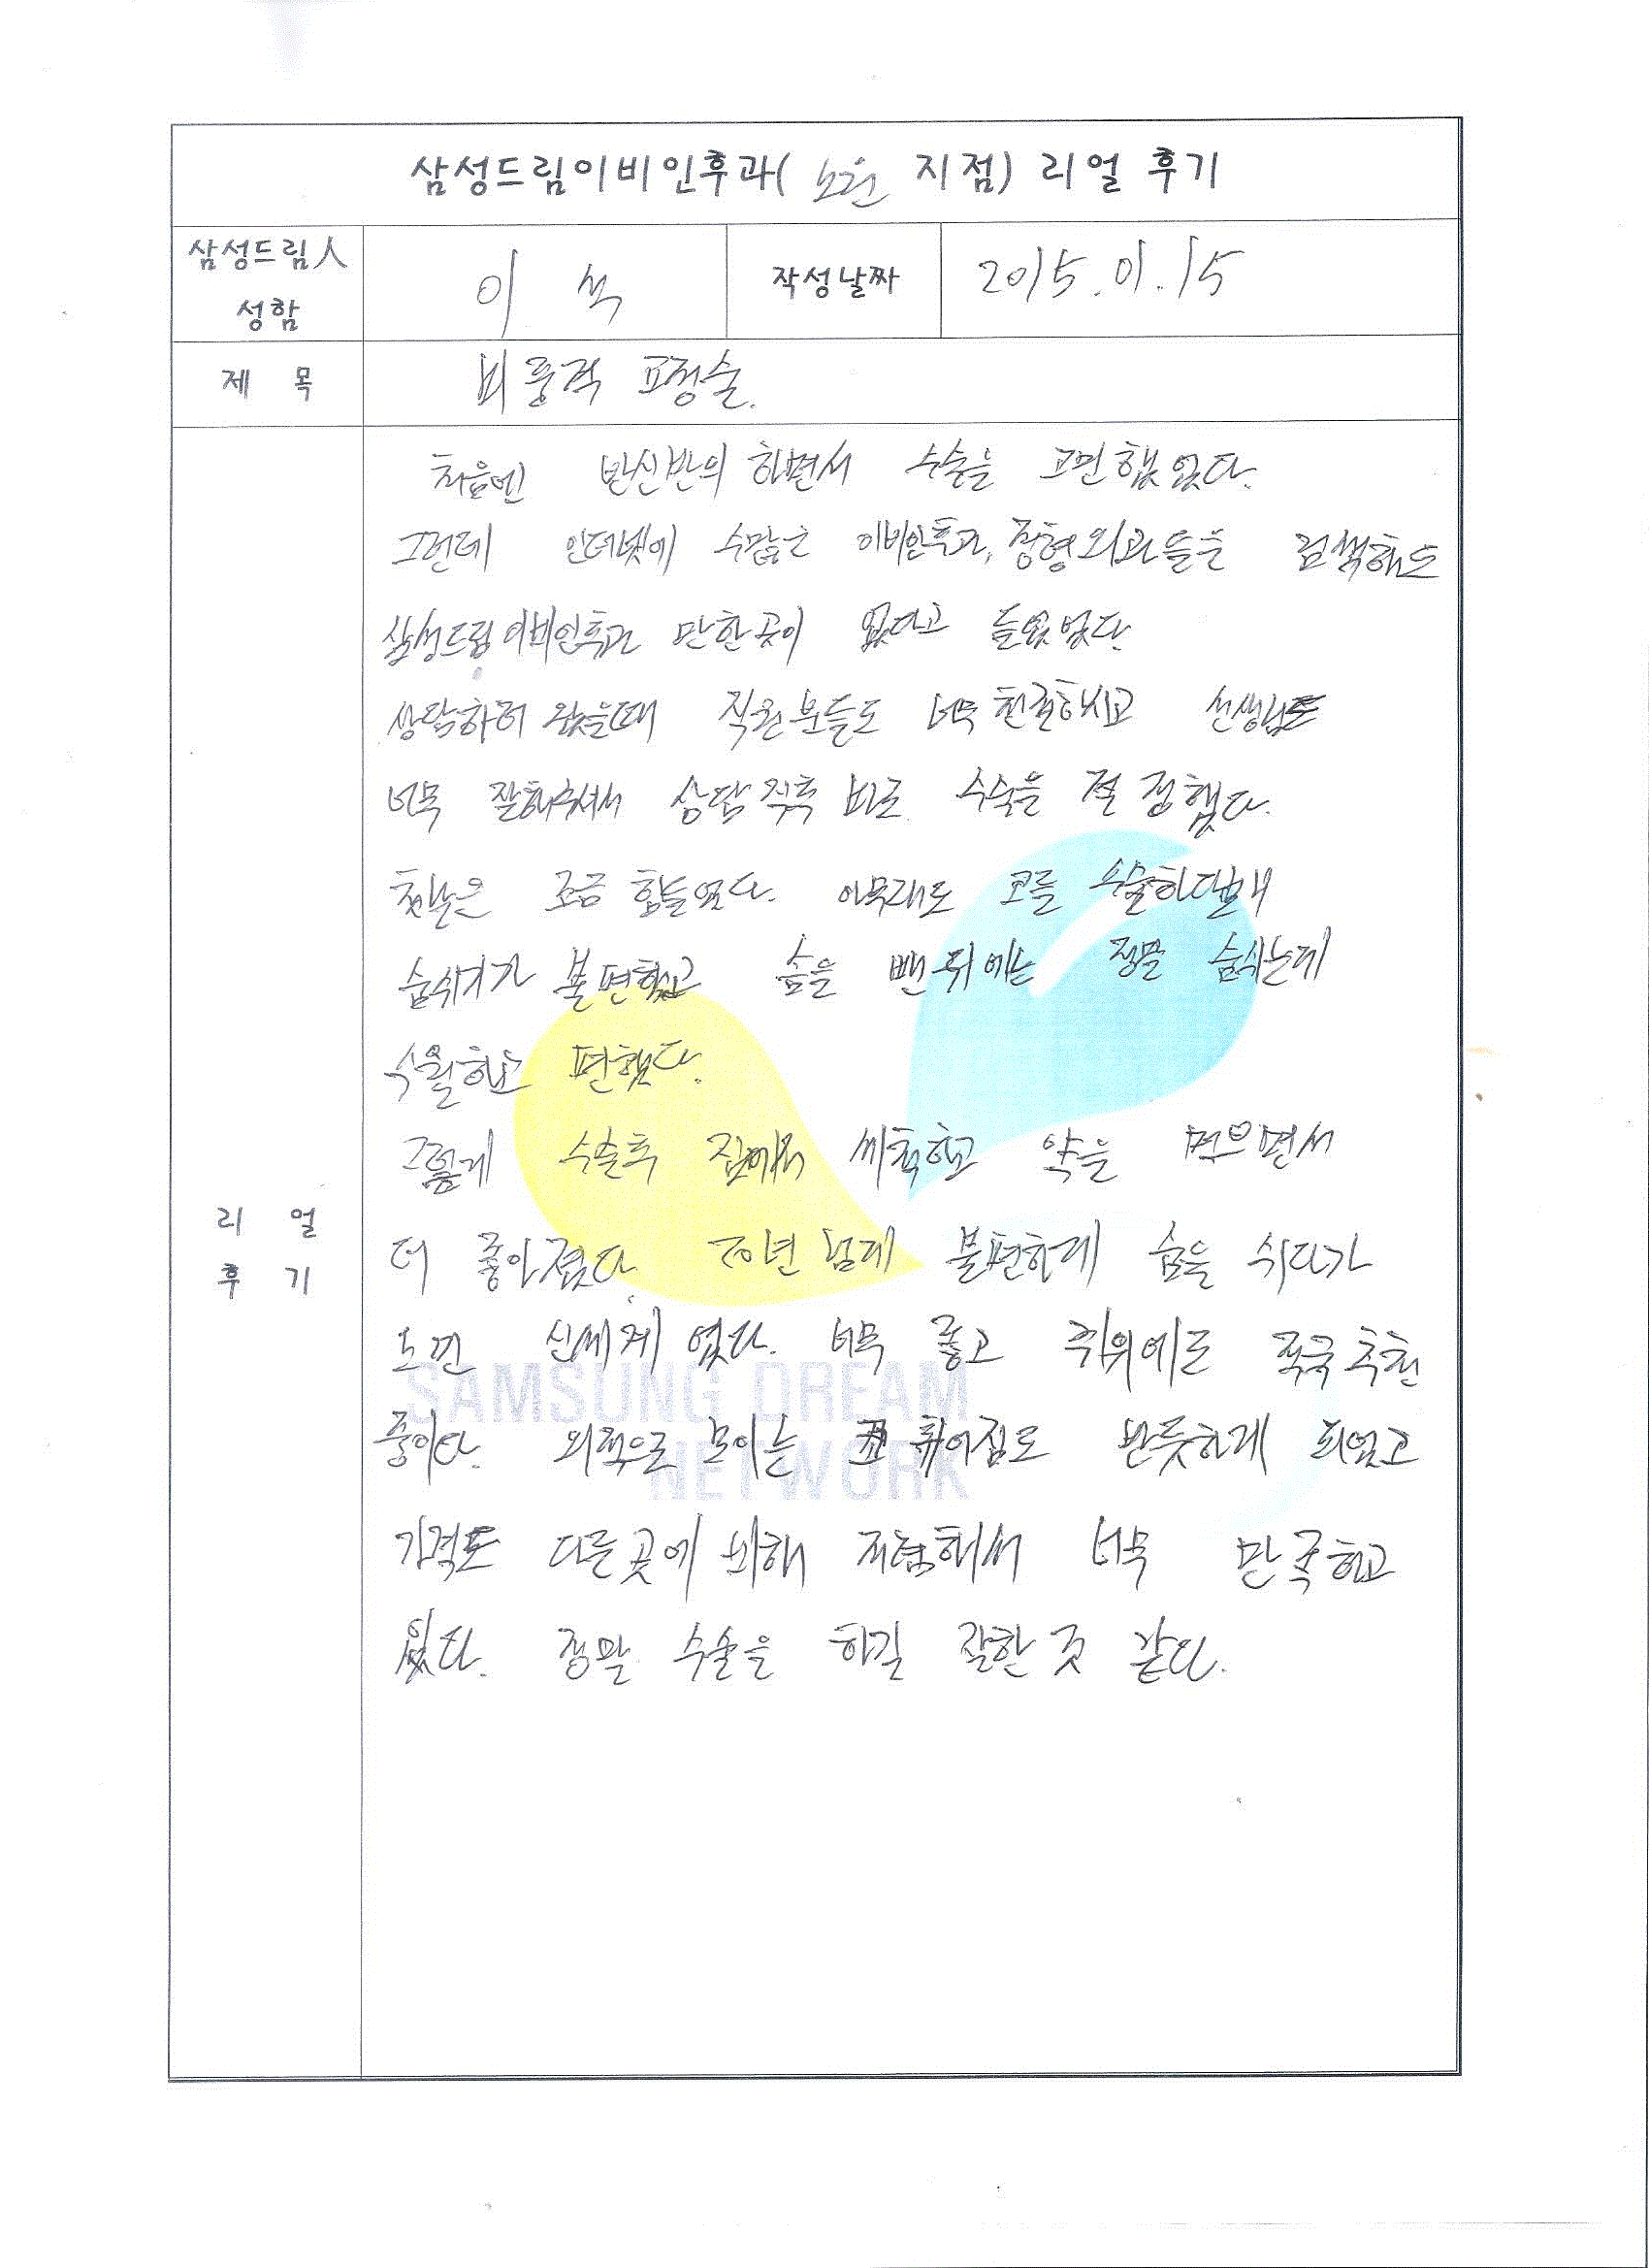 삼성드림이비인후과( 노원 지점) 리얼 후기
삼성드림人
성함
이 석
작성날짜
2015.01.15
제 목
비중격 교정술.
처음엔 반신반의 하면서 수술을 고민했었다.
그런데 인터넷에 수많은 이비인후과, 정형외과들을 검색해도
삼성드림이비인후과 만한곳이 없다고 들었었다.
상담하러 왔을때 직원분들도 너무 친절하시고 선생님도
너무 잘해주셔서 상담직후 바로 수술을 결정했다.
첫날은 조금 힘들었다. 아무래도 코를 수술하다보니
숨쉬기가 불편했고 솜을 뺀 뒤에는 정말 숨쉬는데
수월하고 편했다.
그렇게 수술후 집에서 세척하고 약을 먹으면서
더 좋아졌다. 10년 넘게 불편하게 숨을 쉬다가
노낀 신세계였다. 너무 좋고 주위에도 적극추천
중이다. 외적으로 보이는 휘어짐도 반듯하게 되었고
가격도 다른곳에 비해 저렴해서 너무 만족하고
있다. 정말 수술을 하길 잘한 것 같다.
리 얼
후 기
SAMSUNG DREAM
NETWORK